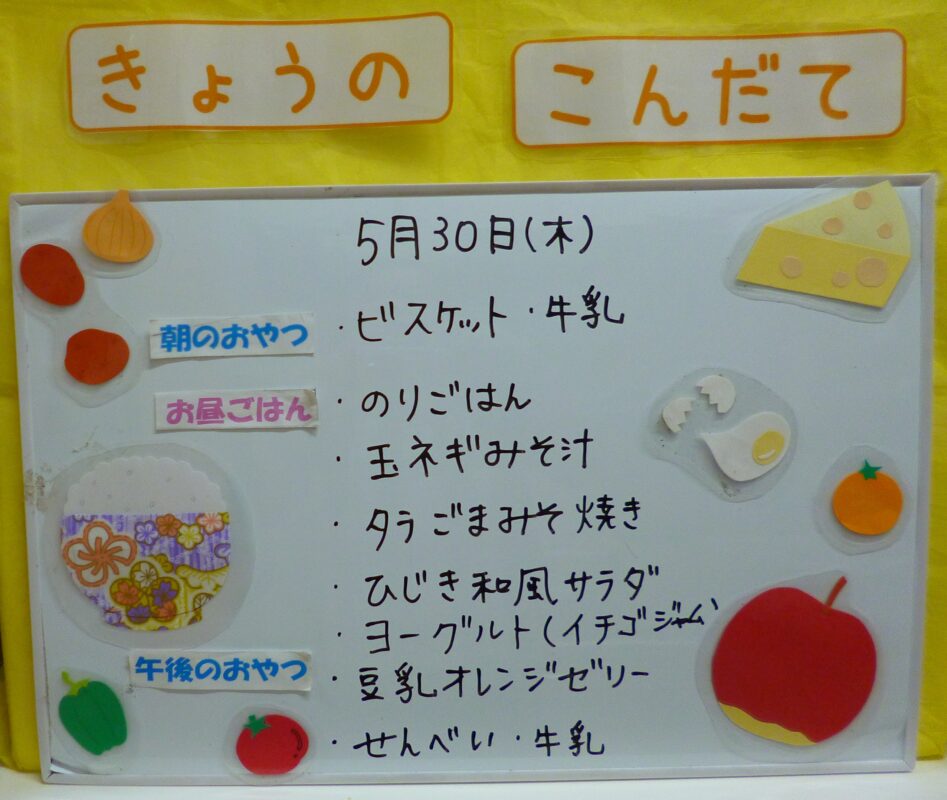 きょうの こんだて
5月30日(木)
朝のおやつ ・ビスケット・牛乳
お昼ごはん ・のりごはん
・玉ネギみそ汁
・タラごまみそ焼き
・ひじき和風サラダ
・ヨーグルト(イチゴジャム)
午後のおやつ ・豆乳オレンジゼリー
・せんべい・牛乳